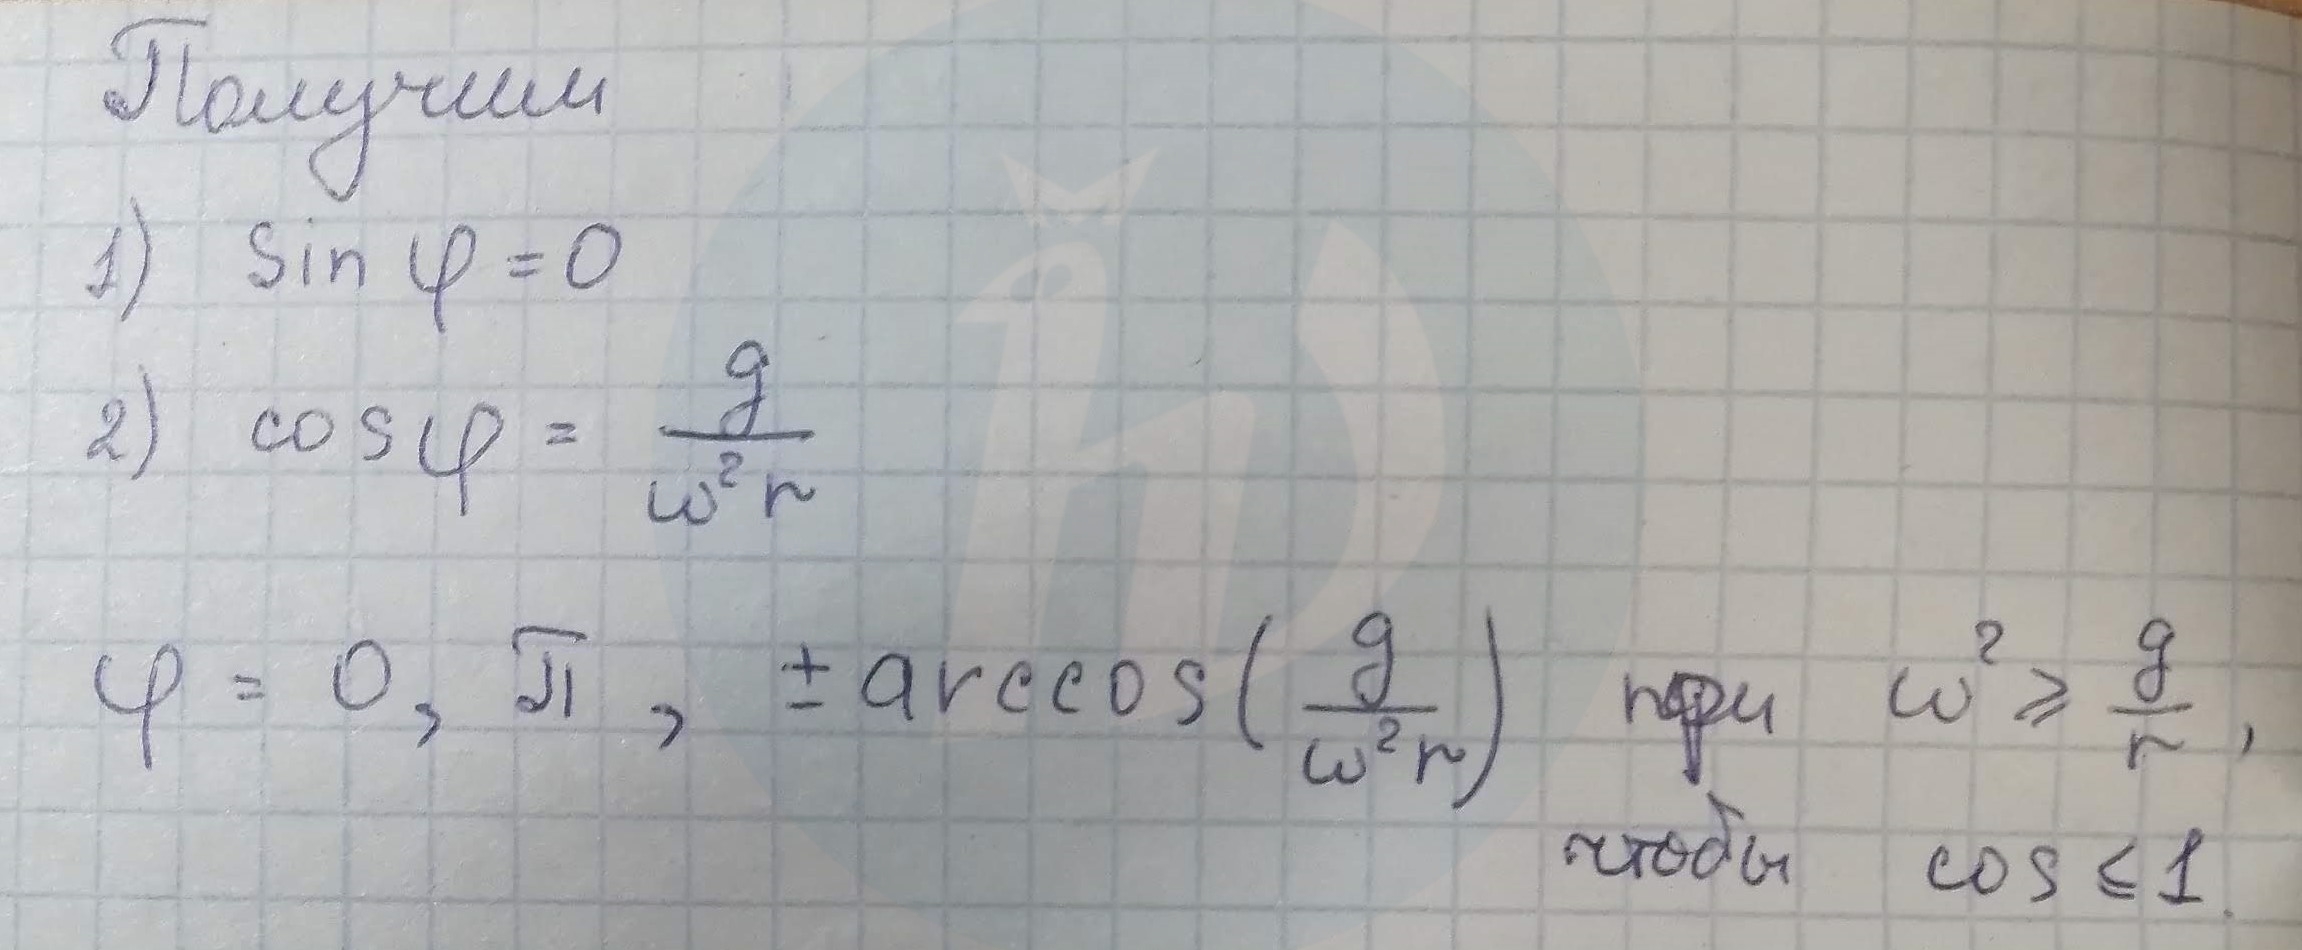 Получим
1) sin φ = 0
2) cos φ = g / ω² r
φ = 0, π, ± arccos(g / ω² r) при ω² ⩾ g / r,
чтобы cos ⩽ 1.